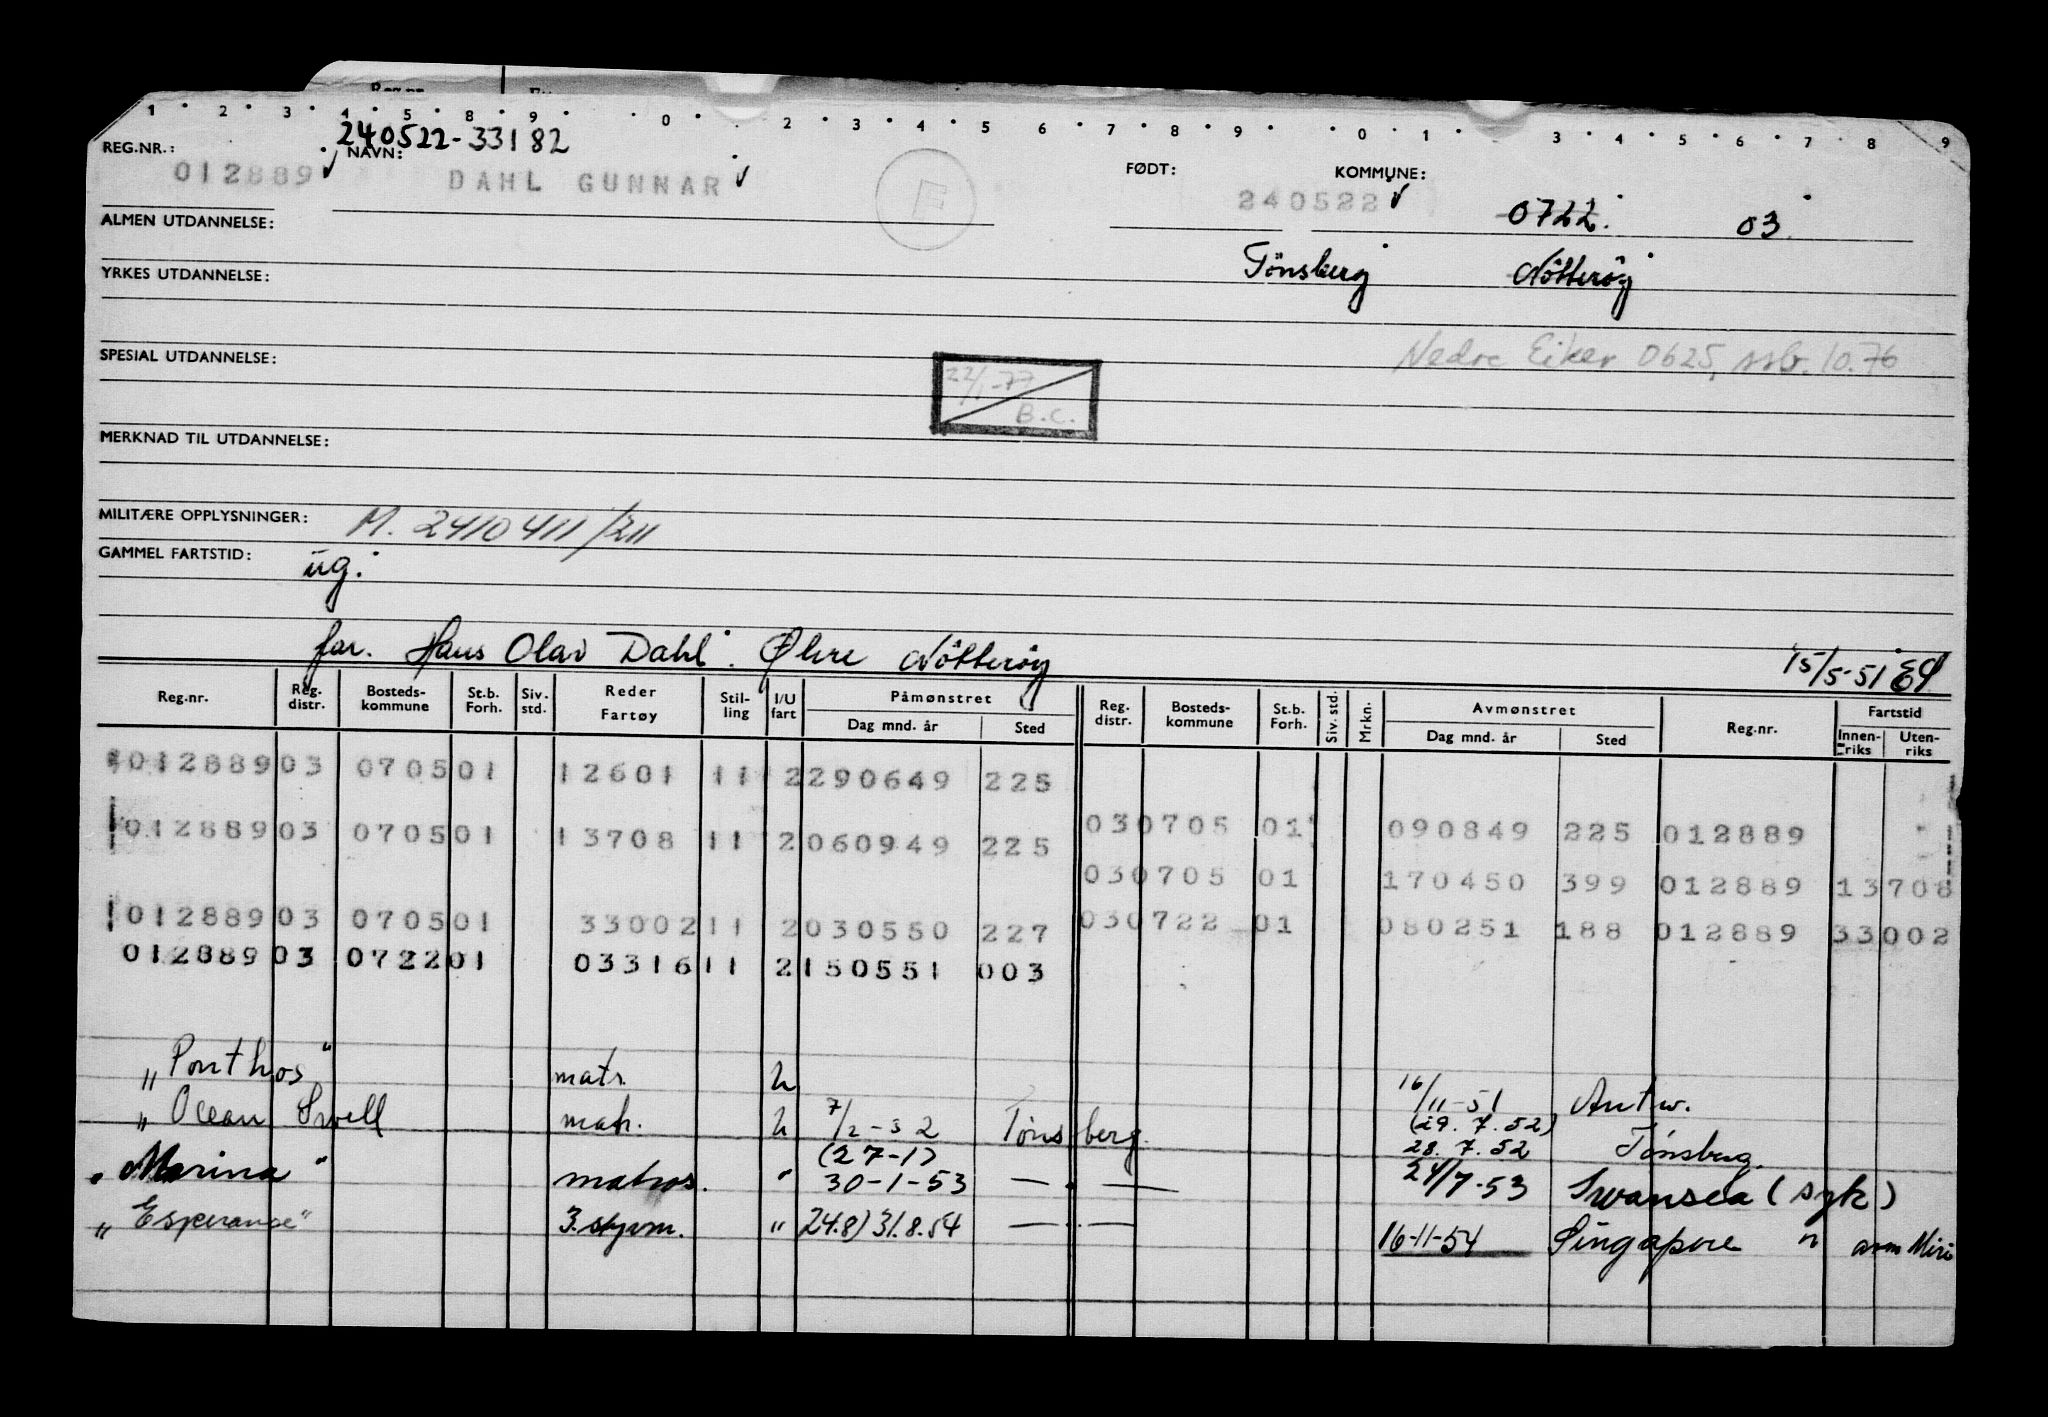 1 2 3 4 5 8 9 0 2 3 4 5 6 7 8 9 0 1 3 4 5 6 7 8 9
240522-33182
REG.NR.: NAVN: FØDT: KOMMUNE:
012889 DAHL GUNNAR 240522 0722. 03
ALMEN UTDANNELSE:
Tönsberg Nötteröy
YRKES UTDANNELSE:
Nedre Eiker 0625, ssb. 10.76
SPESIAL UTDANNELSE:
22/1-77
B.C.
MERKNAD TIL UTDANNELSE:
MILITÆRE OPPLYSNINGER: M. 2410411/211
GAMMEL FARTSTID: ug.
far. Hans Olav Dahl. Ølvre Nötteröy 15/5-51
Reg.nr. Reg. distr. Bosteds-kommune St.b. Forh. Siv. std. Reder Fartøy Stil-ling I/U fart Påmønstret Dag mnd. år Sted Reg. distr. Bosteds-kommune St.b. Forh. Siv. std. Mrkn. Avmønstret Dag mnd. år Sted Reg.nr. Fartstid Innen-riks Uten-riks
012889 03 0705 01 12601 11 2 290649 225
03 0705 01 090849 225 012889
012889 03 0705 01 13708 11 2 060949 225
03 0705 01 170450 399 012889 13708
012889 03 0705 01 33002 11 2 030550 227 03 0722 01 080251 188 012889 33002
012889 03 0722 01 03316 11 2 150551 003
"Ponthos" matr. U 16/11-51 Antw.
"Ocean Swell matr. U 7/2-52 Tønsberg. (29.7.52)
(27-1) 28.7.52 Tønsberg.
"Marina" matros. " 30-1-53 — " — 24/7-53 Swansea (syk)
"Esperance" 3. styrm. " 24.8) 31.8.54 — " — 16-11-54 Singapore " avm Miri